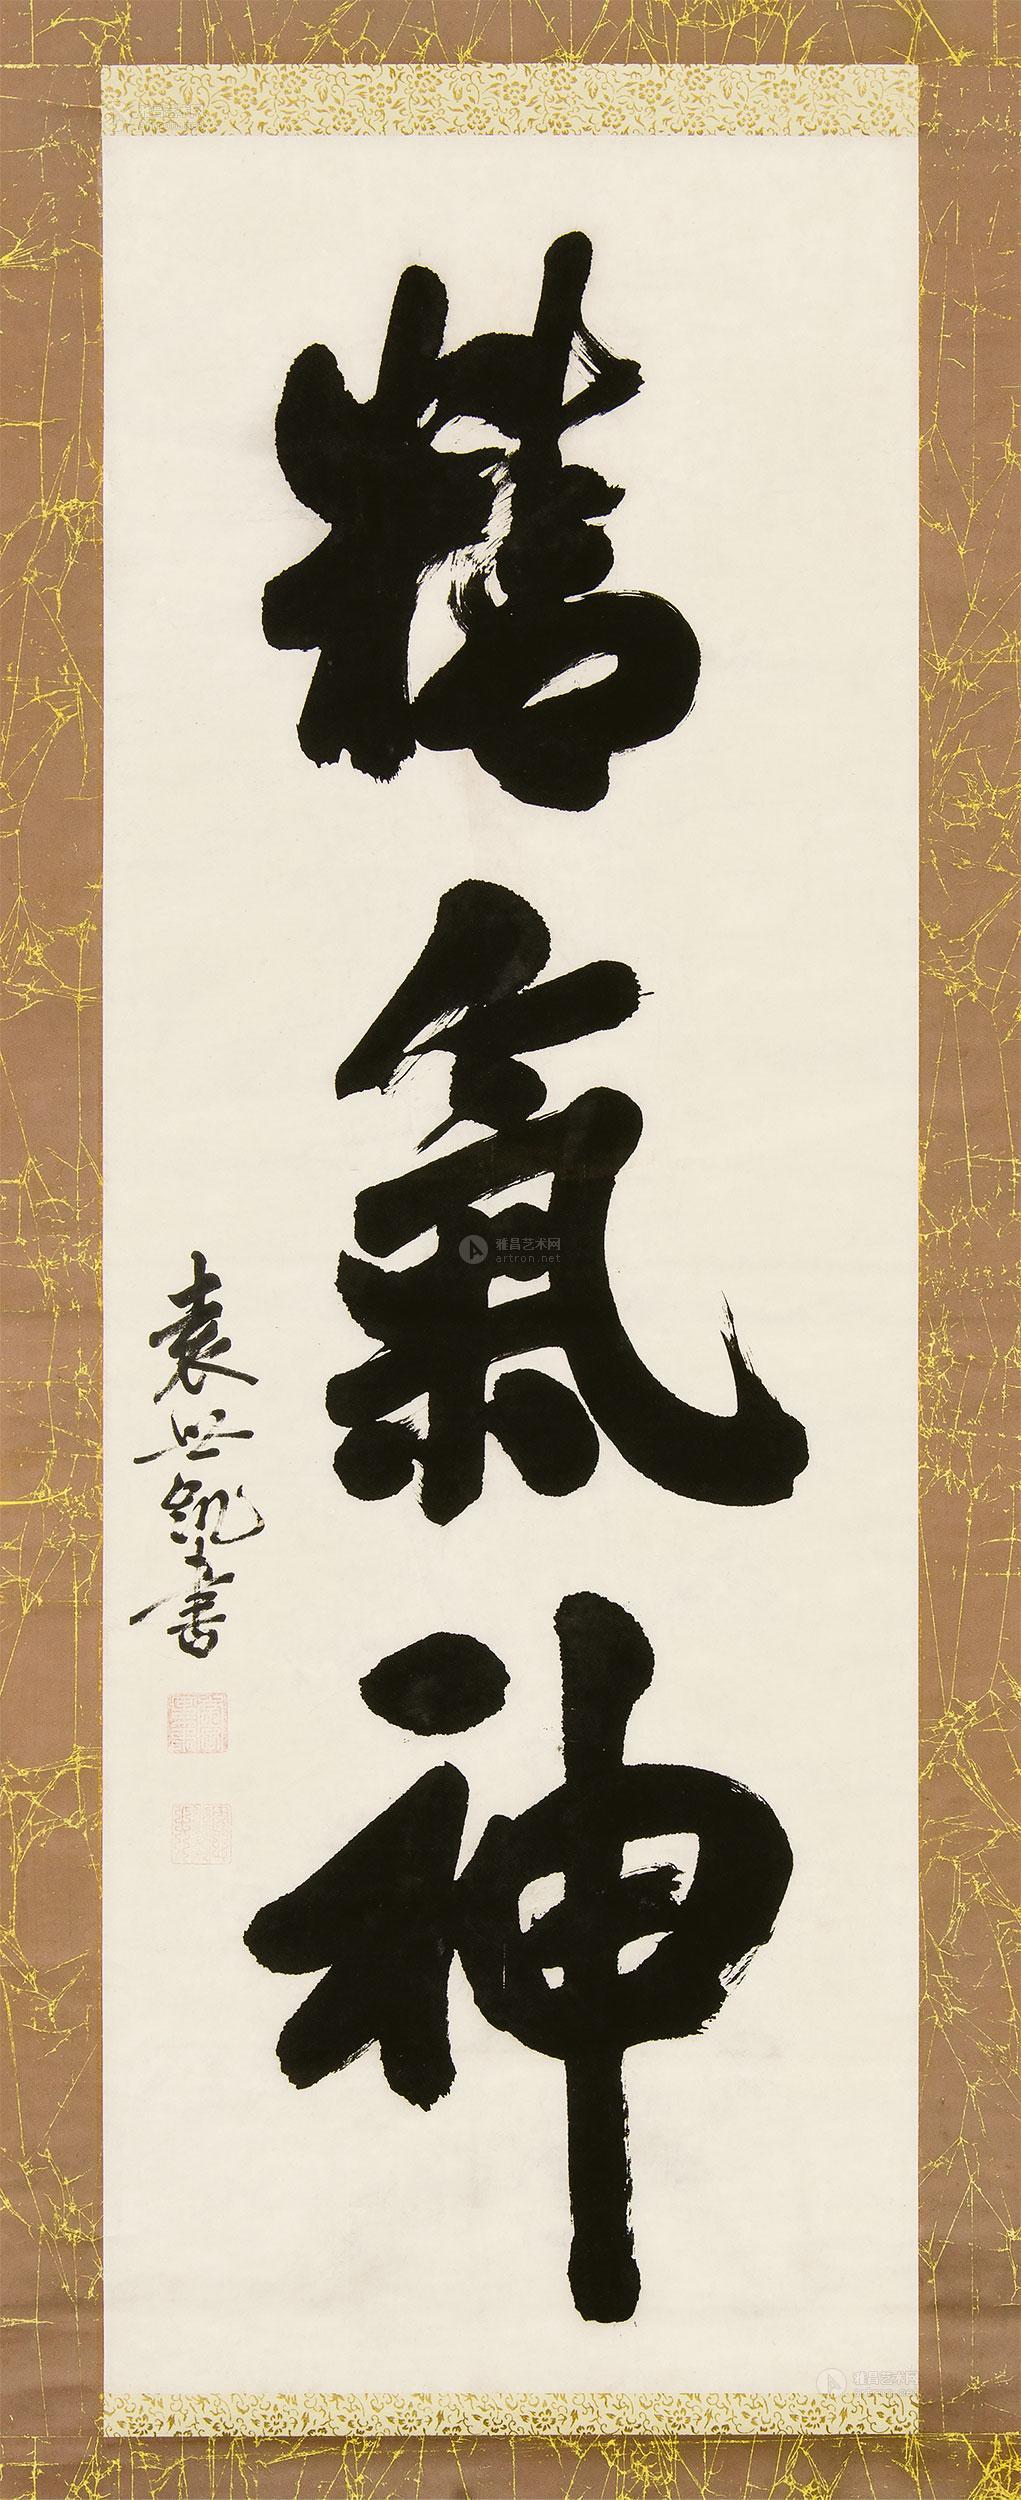 精氣神
袁世凱書
雅昌艺术网
artron.net
雅昌艺术网